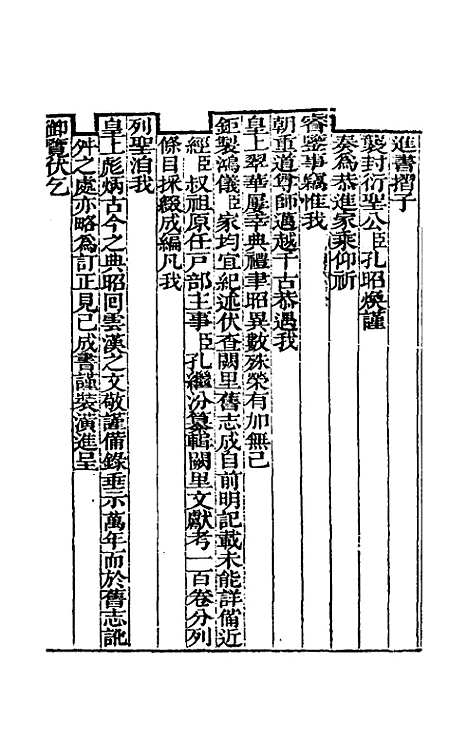 進書摺子
襲封衍聖公臣孔昭煥謹
奏為恭進家乘仰祈
睿鑒事竊惟我
朝重道尊師邁越千古恭遇我
皇上翠華屢幸典禮聿昭異數殊榮有加無已
鉅製鴻儀臣家均宜紀述伏查闕里舊志成自前明記載未能詳備近
經臣叔祖原任戶部主事臣孔繼汾纂輯闕里文獻考一百卷分列
條目採綴成編凡我
列聖洎我
皇上彪炳古今之典昭回雲漢之文敬謹備錄垂示萬年而於舊志訛
舛之處亦略為訂正見已成書謹裝潢進呈
御覽伏乞